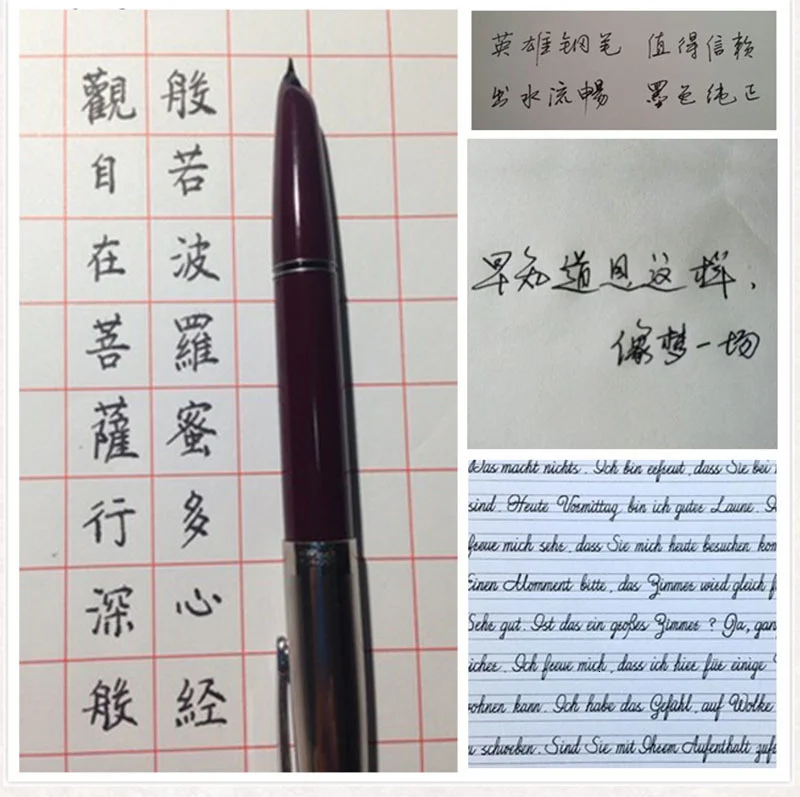 般若波羅蜜多心経
觀自在菩薩行深般
英雄钢笔 值得信赖
出水流暢 墨色纯正
早知道是这样，
像梦一场
Das macht nichts. Ich bin erfreut, dass Sie bei
sind. Heute Vormittag bin ich guter Laune.
freue mich sehr, dass Sie mich heute besuchen kon
Einen Momment bitte, das Zimmer wird gleich f
Sehr gut. Ist das ein großes Zimmer? Ja, gan
icher. Ich freue mich, dass ich hier für einige
ohnen kann. Ich habe das Gefühl, auf Wolke
u schweben. Sind Sie mit Ihrem Aufenthalt zufe